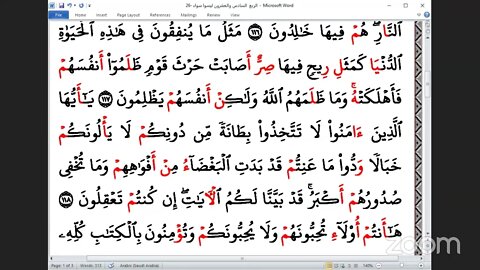 الربع السادس والعشرون ليسوا سواء -26 - Microsoft Word
File Home Insert Page Layout References Mailings Review View
ٱلنَّارِۖ هُمۡ فِيهَا خَٰلِدُونَ ١١٦ مَثَلُ مَا يُنفِقُونَ فِي هَٰذِهِ ٱلۡحَيَوٰةِ
ٱلدُّنۡيَا كَمَثَلِ رِيحٖ فِيهَا صِرٌّ أَصَابَتۡ حَرۡثَ قَوۡمٖ ظَلَمُوٓاْ أَنفُسَهُمۡ
فَأَهۡلَكَتۡهُۚ وَمَا ظَلَمَهُمُ ٱللَّهُ وَلَٰكِنۡ أَنفُسَهُمۡ يَظۡلِمُونَ ١١٧ يَٰٓأَيُّهَا
ٱلَّذِينَ ءَامَنُواْ لَا تَتَّخِذُواْ بِطَانَةٗ مِّن دُونِكُمۡ لَا يَأۡلُونَكُمۡ
خَبَالٗا وَدُّواْ مَا عَنِتُّمۡ قَدۡ بَدَتِ ٱلۡبَغۡضَآءُ مِنۡ أَفۡوَٰهِهِمۡ وَمَا تُخۡفِي
صُدُورُهُمۡ أَكۡبَرُۚ قَدۡ بَيَّنَّا لَكُمُ ٱلۡأٓيَٰتِۖ إِن كُنتُمۡ تَعۡقِلُونَ ١١٨
هَٰٓأَنتُمۡ أُوْلَآءِ تُحِبُّونَهُمۡ وَلَا يُحِبُّونَكُمۡ وَتُؤۡمِنُونَ بِٱلۡكِتَٰبِ كُلِّهِۦ
Page: 1 of 3 Words: 513 Arabic (Saudi Arabia) 140%
zoom